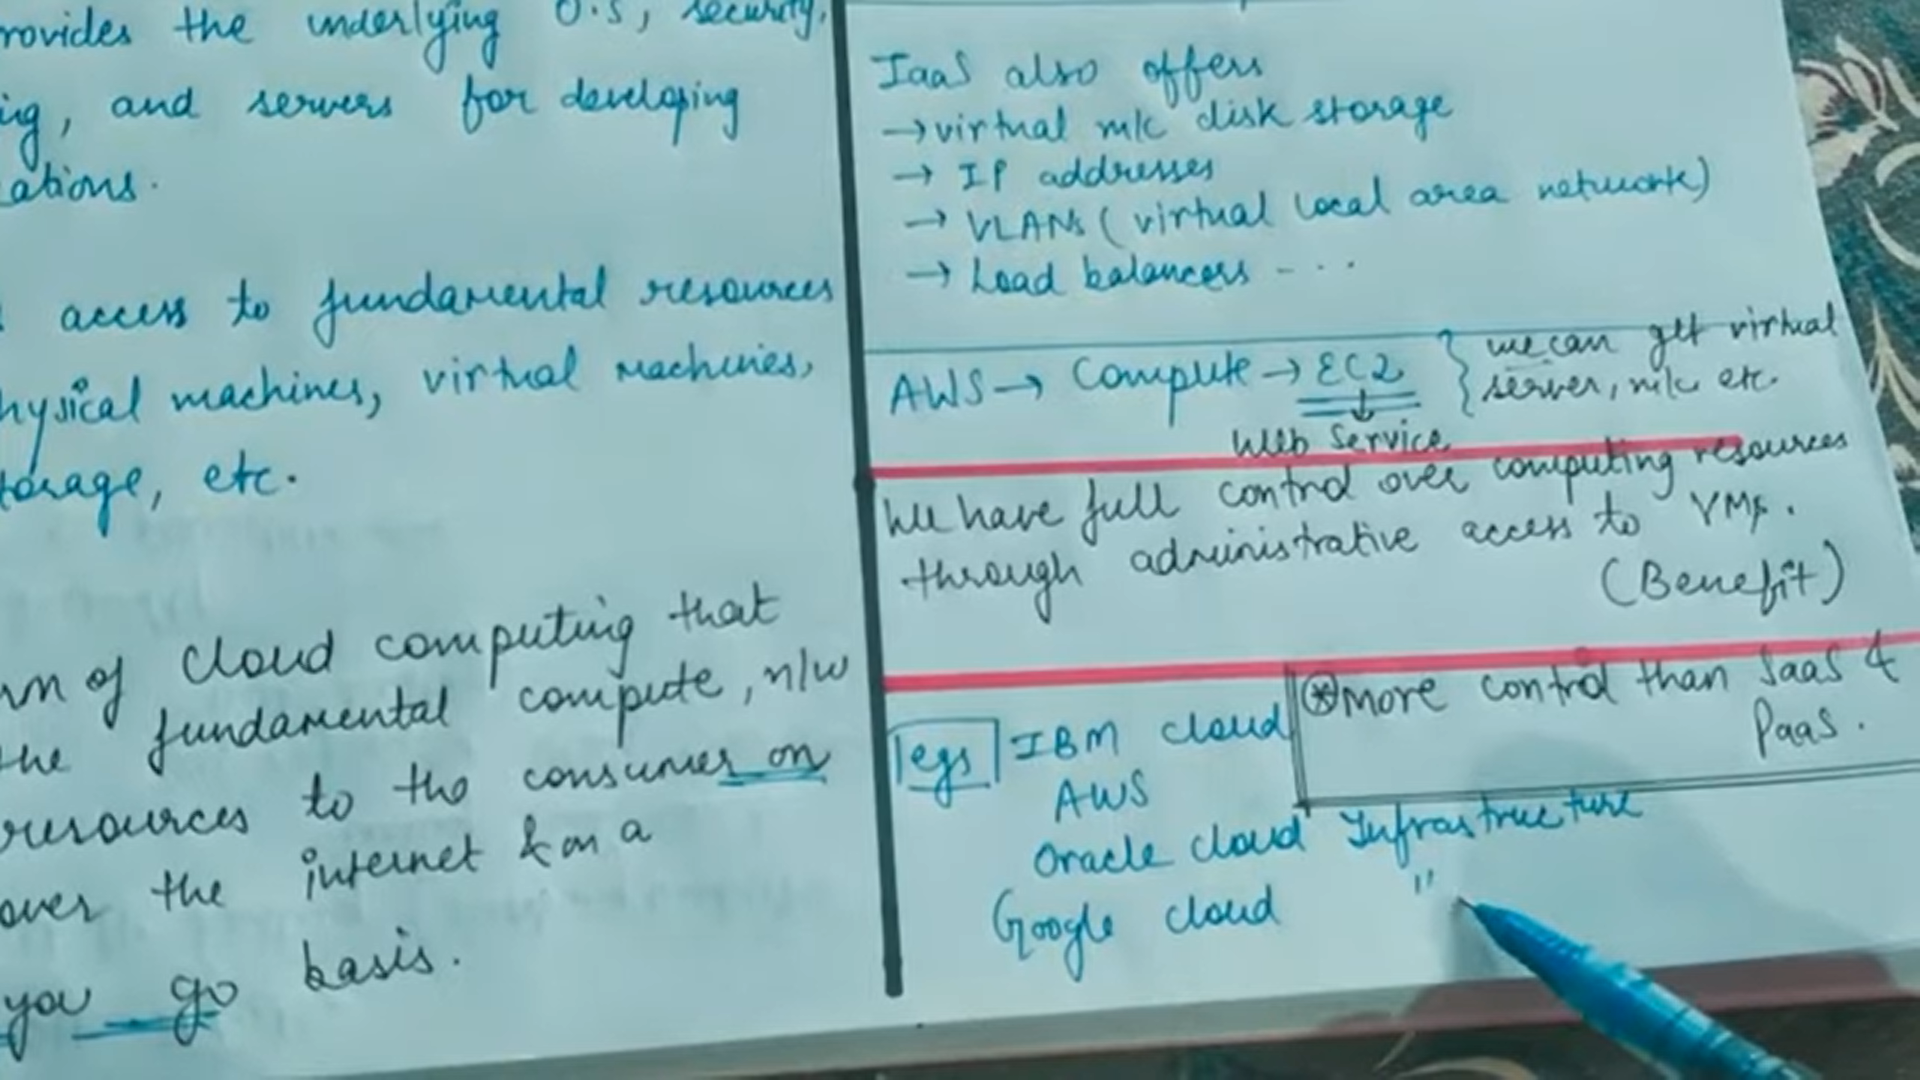 rovides the underlying O.S, security,
ing, and servers for developing
ations.
access to fundamental resources
hysical machines, virtual machines,
torage, etc.
of cloud computing that
the fundamental compute, n/w
resources to the consumer on
over the internet & on a
you go basis.
IaaS also offers
→ virtual m/c disk storage
→ IP addresses
→ VLANs (virtual local area network)
→ Load balancers - - - -
AWS → Compute → EC2 } we can get virtual
server, m/c etc.
↓
Web Service
We have full control over computing resources
through administrative access to VMs.
(Benefit)
⊛ More control than SaaS &
PaaS.
egs IBM cloud
AWS
Oracle cloud Infrastructure
Google cloud "